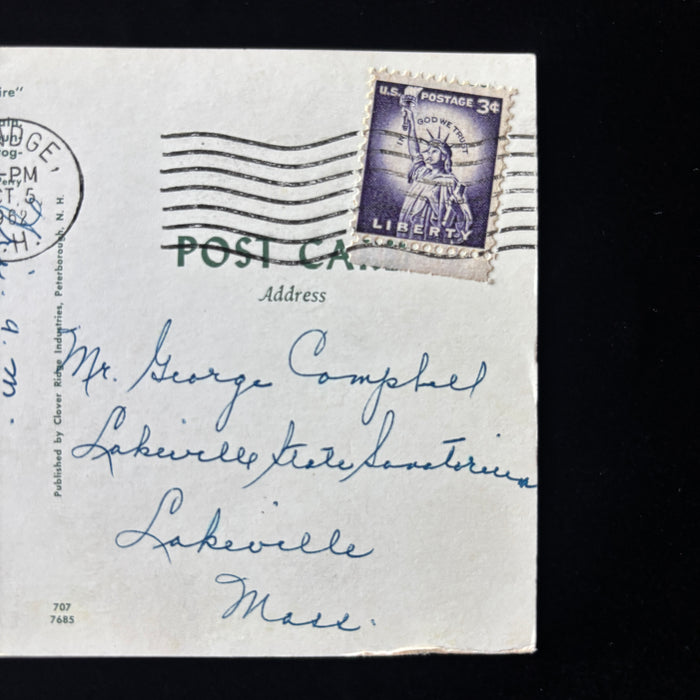 ire"
DGE,
-PM
CT. 5
1962
.H.
U.S. POSTAGE 3¢
IN GOD WE TRUST
LIBERTY
POST CA
Address
Mr. George Campbell
Lakeville State Sanatorium
Lakeville
Mass.
Published by Clover Ridge Industries, Peterborough, N. H.
707
7685